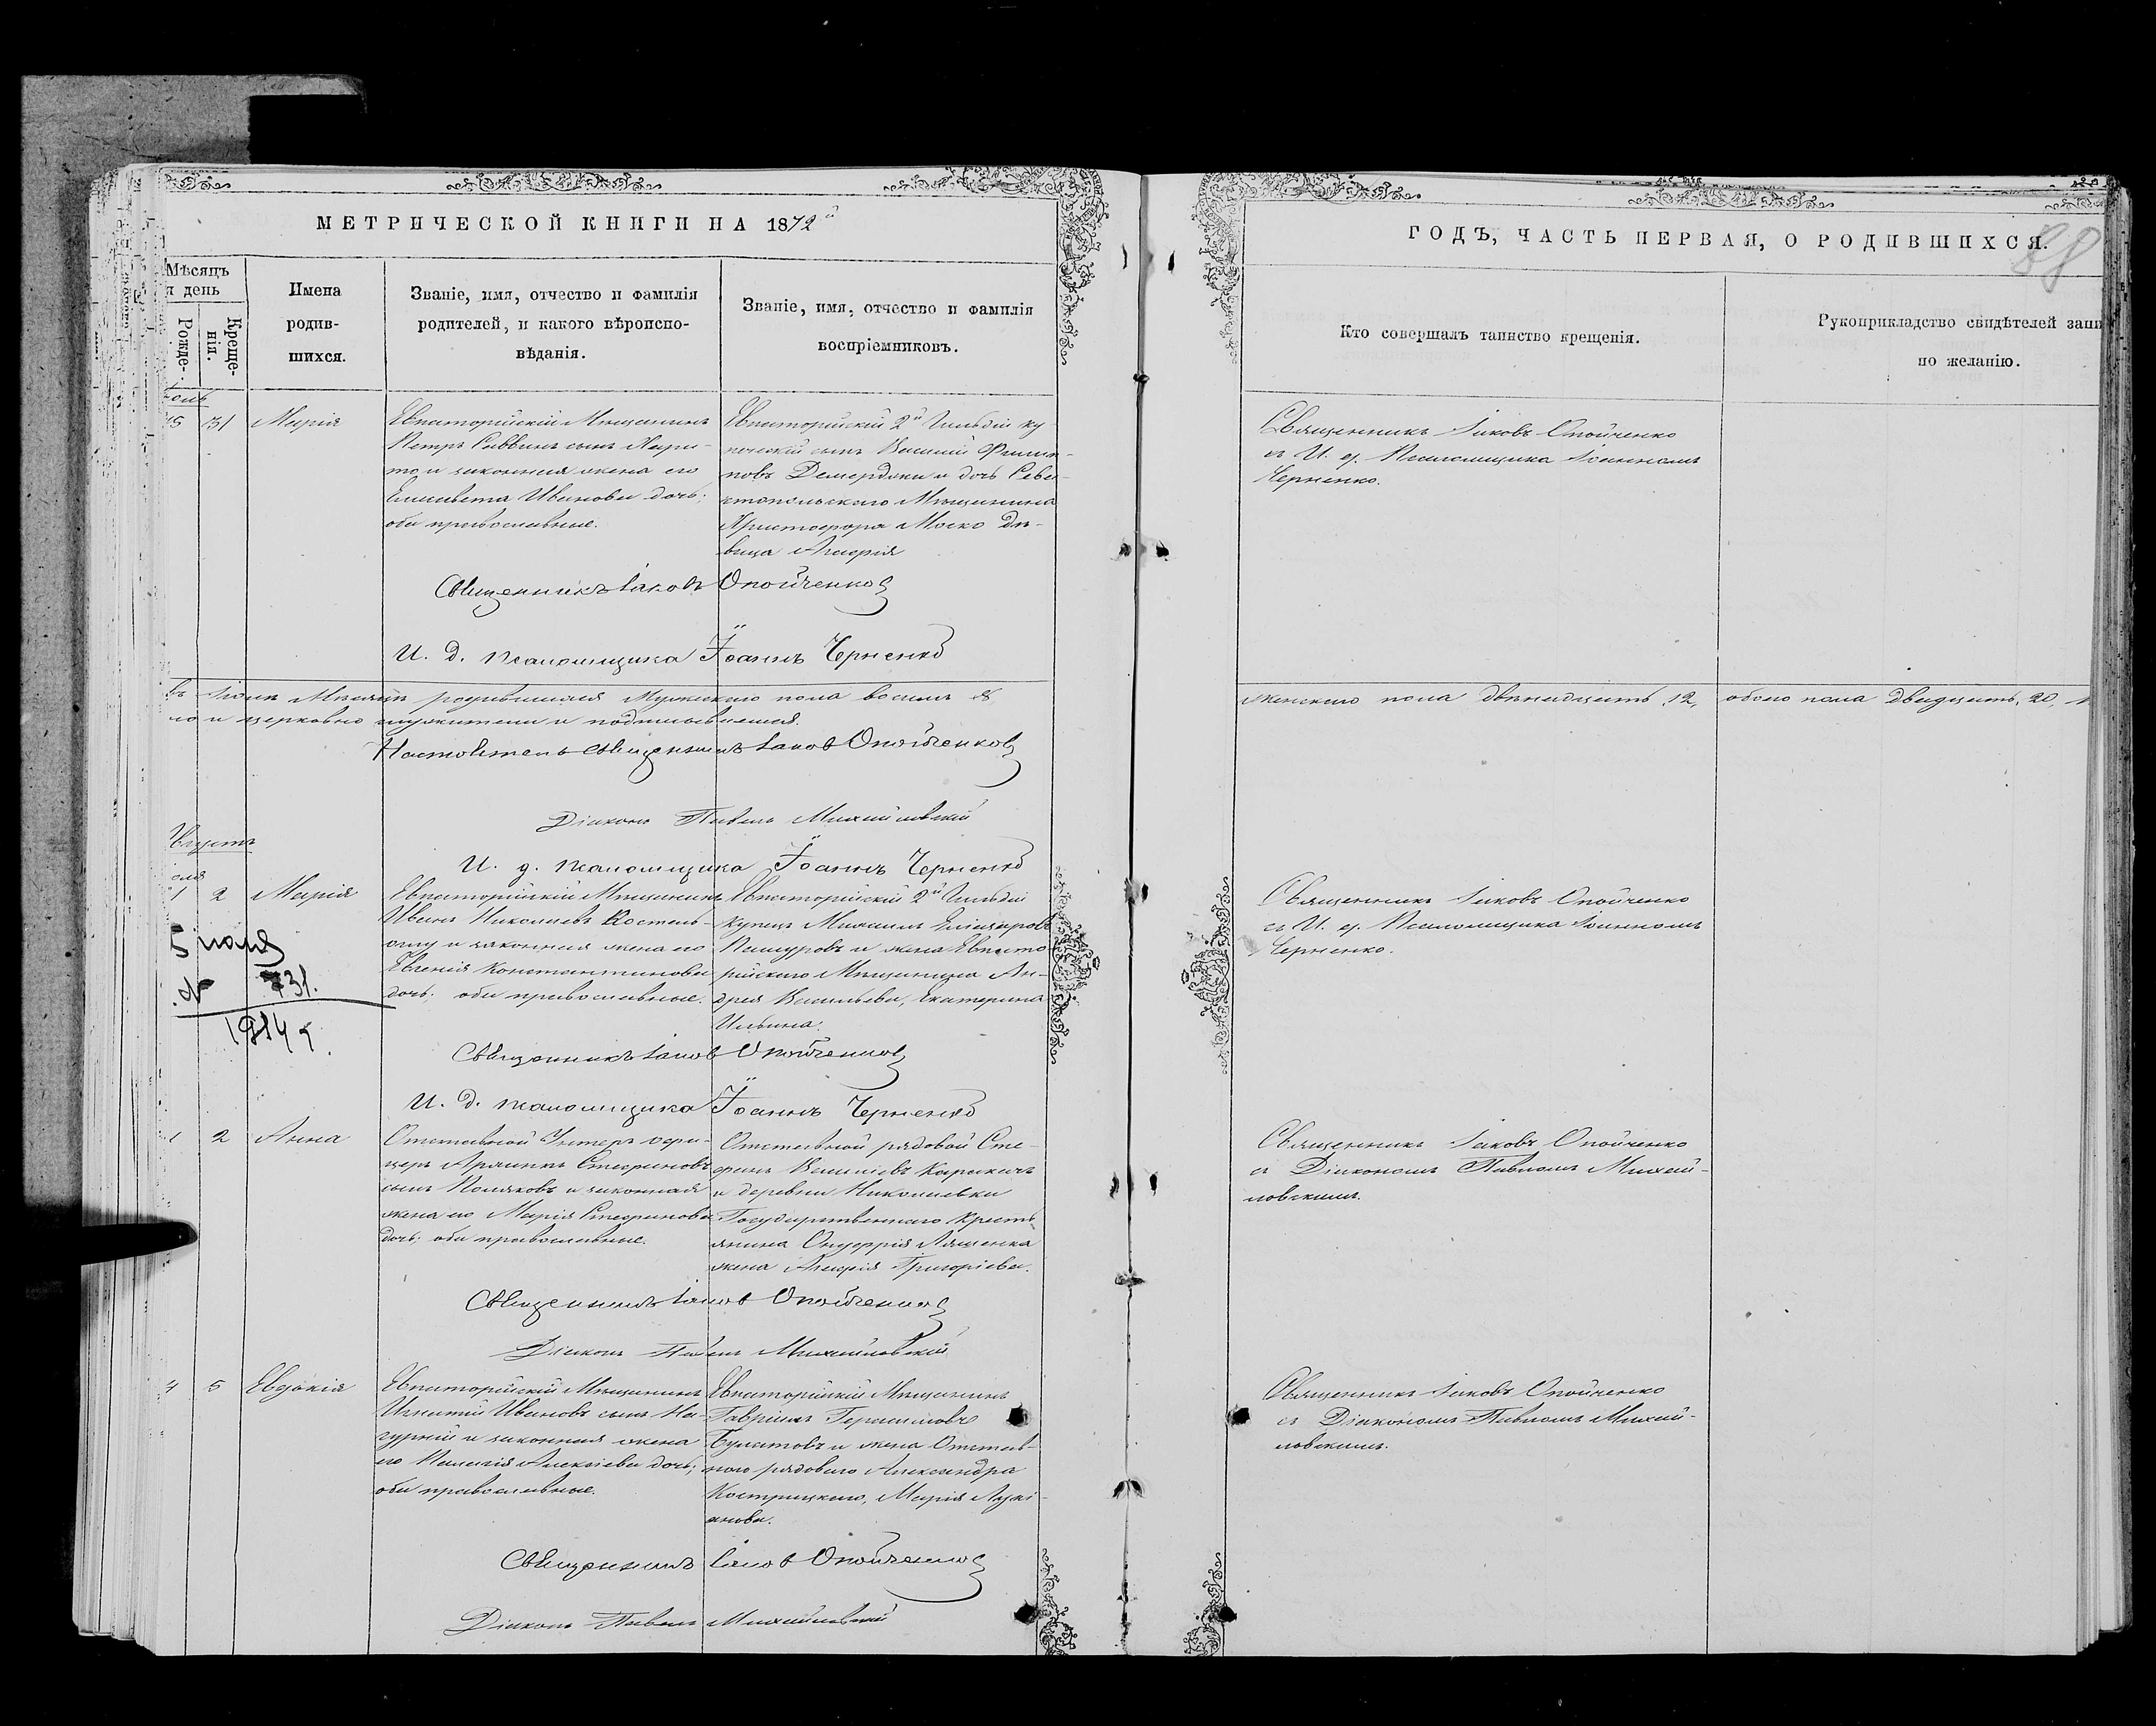 МЕТРИЧЕСКОЙ КНИГИ НА 1872й
Мѣсяцъ
и день
Рожде-
Креще-
нія.
Имена
родив-
шихся.
Званіе, имя, отчество и фамилія
родителей, и какого вѣроиспо-
вѣданія.
Званіе, имя, отчество и фамилія
воспріемниковъ.
15 31 Марія
Евпаторійскій Мѣщанинъ
Петръ Саввинъ сынъ Хари-
то и законная жена его
Елисавета Иванова дочь;
оба православные.
Евпаторійскій 2й Гильдіи ку-
печескій сынъ Василій Филип-
повъ Демерджи и дочь Сева-
стопольскаго Мѣщанина
Христофора Моско дѣ-
вица
Священникъ Іаковъ Опойченко
И. д. псаломщика Іоаннъ Черненко
родившихся Мужескаго пола восемь 8,
но и церковно служители и подписываемся.
Настоятель Священникъ Іаковъ Опойченко
Діаконъ Павелъ Михайловскій
И. д. псаломщика Іоаннъ Черненко
Августъ
1 2 Марія
Евпаторійскій Мѣщанинъ
Иванъ Николаевъ
и законная жена его
Евгенія Константинова
дочь; оба православные.
Евпаторійскій 2й Гильдіи
купецъ Михаилъ
Пашуровъ и жена Евпато-
рійскаго Мѣщанина Ан-
дрея Васильева, Екатерина
Ильина.
5 июля
№ 731.
1914 г.
Священникъ Іаковъ Опойченко
И. д. псаломщика Іоаннъ Черненко
1 2 Анна
Отставной Унтеръ офи-
церъ Стефановъ
сынъ Поляковъ и законная
жена его Марія Стефанова
дочь; оба православные.
Отставной рядовой Сте-
фанъ
и деревни Николаевки
Государственнаго кресть-
янина Онуфрія Ляшенка
жена Григоріева.
Священникъ Іаковъ Опойченко
Діаконъ Павелъ Михайловскій
4 5 Евдокія
Евпаторійскій Мѣщанинъ
Игнатій Ивановъ сынъ На-
гурній и законная жена
его Пелагія Алексіева дочь;
оба православные.
Евпаторійскій Мѣщанинъ
Гавріилъ Герасимовъ
Булатовъ и жена Отстав-
ного рядового Александра
Кострицкаго, Марія Лукі-
анова.
Священникъ Іаковъ Опойченко
Діаконъ Павелъ Михайловскій
ГОДЪ, ЧАСТЬ ПЕРВАЯ, О РОДИВШИХСЯ.
88
Кто совершалъ таинство крещенія.
Рукоприкладство свидѣтелей запи
по желанію.
Священникъ Іаковъ Опойченко
съ И. д. Псаломщика Іоанномъ
Черненко.
женскаго пола двѣнадцать, 12, обоего пола двадцать, 20,
Священникъ Іаковъ Опойченко
съ И. д. Псаломщика Іоанномъ
Черненко.
Священникъ Іаковъ Опойченко
съ Діакономъ Павломъ Михай-
ловскимъ.
Священникъ Іаковъ Опойченко
съ Діакономъ Павломъ Михай-
ловскимъ.